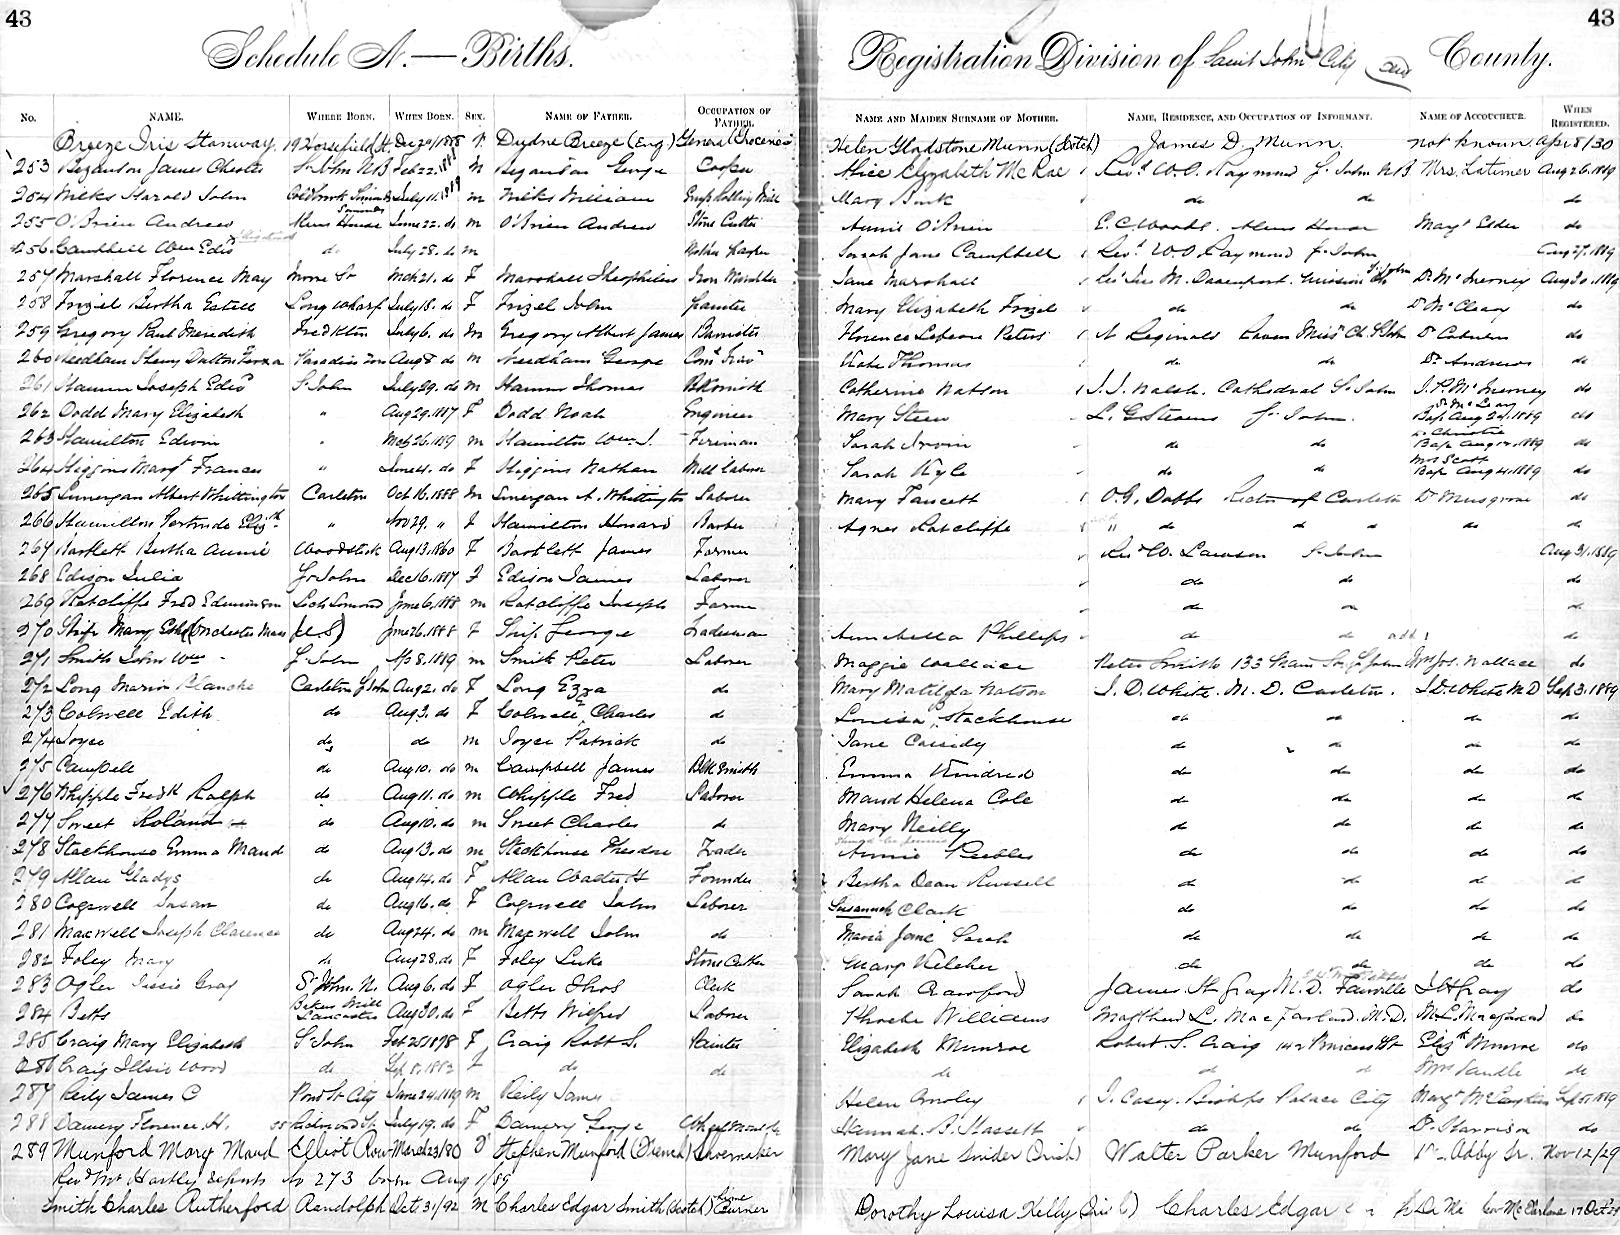 43 43
Schedule A.—Births. Registration Division of Saint John City and County.
No. NAME. WHERE BORN. WHEN BORN. SEX. NAME OF FATHER. OCCUPATION OF FATHER. NAME AND MAIDEN SURNAME OF MOTHER. NAME, RESIDENCE, AND OCCUPATION OF INFORMANT. NAME OF ACCOUCHEUR. WHEN REGISTERED.
Breeze Iris Stanway. 19 Horsefield St. Dec 20/1888 F. Breeze (Eng) General (Groceries) Helen Gladstone Munn (Scotch) James D. Munn. not known Apr 8/30
253 James Chester St John NB Feb 22. M George Cooper Alice Elizabeth McRae Revd W.O. Raymond St John NB Mrs. Latimer Aug 26.1889
254 Wilks Harold John July 11. m Wilks William Rolling Mill Mary do do do
255 O'Brien Andrew Alms House June 22. do m O'Brien Andrew Stone Cutter Annie O'Brien E.C. Woods. Alms House Margt Elder do
256 Campbell Wm Edwd do July 28. do m Sarah Jane Campbell Revd W.O Raymond St John Aug 27.1889
257 Marshall Florence May Moore St Mch 21. do F Marshall Theophilus Iron Moulder Jane Marshall M. Davenport. Mission Ch. St John Dr McInerney Aug 30.1889
258 Frizel Bertha Estell Long Wharf July 18. do F Frizel John Painter Mary Elizabeth Frizel do do Dr McCleary do
259 Gregory Paul Meredith Fredkton July 6. do m Gregory Albert James Barrister Florence Peters Reginald Raven Missn Ch. St John Dr Coburn do
260 Needham Henry Dalton Paradise Row Aug 8. do m Needham George Coml Travr Kate Thomas do do Dr Andrews do
261 Joseph Edwd St John July 29. do m Thomas Blksmith Catherine Watson J.J. Walsh. Cathedral St John J.P. McInerney do
262 Dodd Mary Elizabeth " Aug 29.1887 F Dodd Noah Engineer Mary Steen L. G. Stevens St John. Bap Aug 29.1889 do
263 Hamilton Edwin " Mch 26.1889 m Hamilton Wm J. Fireman Sarah Irvin do do Dr Christie Bap Aug 14.1889 do
264 Higgins Margt Frances " June 4. do F Higgins Nathan Mill labor Sarah Kyle do do Mrs Scott Bap Aug 4.1889 do
265 Albert Whittington Carleton Oct 16.1888 m A. Whittington Laborer Mary Fawceth O.G. Dobbs Rector of Carleton Dr Musgrove do
266 Hamilton Gertrude Elizth " Nov 29. " F Hamilton Howard Barber Agnes Ratcliffe " do do do do do
267 Bartlett Bertha Annie Woodstock Aug 13.1860 F Bartlett James Farmer Revd W. Lawson St John Aug 31.1889
268 Edison Julia St John Dec 16.1887 F Edison James Laborer do do do
269 Ratcliffe Fred Edmunson Loch Lomond June 6.1888 m Ratcliffe Joseph Farmer do do do
270 Mary (Mass U.S) June 26.1888 F George Annabella Phillips do do do
271 Smith John Wm St John Ap 8.1889 m Smith Peter Laborer Maggie Wallace Peter Smith 133 Main St. St John Mrs Jos. Wallace do
272 Long Marion Blanche Carleton St John Aug 2. do F Long Ezra do Mary Matilda Watson J.D. White. M.D. Carleton. J.D. White M.D Sep 3.1889
273 Colwell Edith do Aug 3. do F Colwell, Charles do Louisa, Stackhouse do do do do
274 Joyce do do m Joyce Patrick do Jane Cassidy do do do do
275 Campbell do Aug 10. do m Campbell James Blk Smith Emma Kindred do do do do
276 Whipple Fredk Ralph do Aug 11. do m Whipple Fred Laborer Maud Helena Cole do do do do
277 Sweet Roland do Aug 10. do m Sweet Charles do Mary Neilly do do do do
278 Stackhouse Emma Maud do Aug 13. do m Stackhouse Theodore Trader Annie Peebles do do do do
279 Allan Gladys do Aug 14. do F Allan Walter H Founder Bertha Dean Russell do do do do
280 Cogswell Susan do Aug 16. do F Cogswell John Laborer Susannah Clark do do do do
281 Maxwell Joseph Clarence do Aug 24. do m Maxwell John do Maria Jane Sarah do do do do
282 Foley Mary do Aug 28. do F Foley Luke Stone Cutter Mary Kelcher do do do do
283 Ogler Jessie Gray St John. N. Aug 6. do F Ogler Thos Clerk Sarah Crawford James H Gray M.D. Fairville J H Gray do
284 Betts Lancaster Aug 30. do F Betts Wilfred Laborer Phoebe Williams Matthew L. Macfarland. M.D. M.L. Macfarland do
285 Craig Mary Elizabeth St John Feb 25 1878 F Craig Robt S. Painter Elizabeth Munroe Robert S. Craig 142 Princess St Elizth Munroe do
286 Craig Elsie Wood do Sep 8. 1882 F do do do do do do
287 Reily James C Pond St City June 24.1889 m Reily James Helen J. Casey. Bishops Palace City Margt Sep 5.1889
288 Damery Florence H. Richmond St. July 19. do F Damery George Hannah. B. Hassett do do Dr. Harrison do
289 Munford Mary Maud Elliot Row March 23/80 F Stephen Munford (French) Shoemaker Mary Jane Snider (Irish) Walter Parker Munford Dr. Addy Sr. Nov 12/29
Revd Mr Hartly reports No 273 born Aug 1/89
Smith Charles Rutherford Randolph Oct 31/92 M Charles Edgar Smith (Scotch) Lime Burner Dorothy Louisa Kelly (Irish) Charles Edgar McFarlane 17 Oct